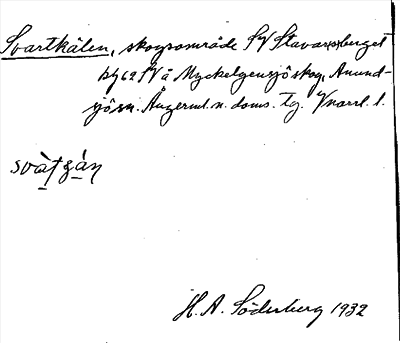 Svartkälen, skogsområde SV Stavarsberget
på 62 SV å Myckelgensjö skog, Anund-
sjö sn. Ångerml. n. doms. tg. Vnorrl. l.
svàtgán
H. A. Söderberg 1932